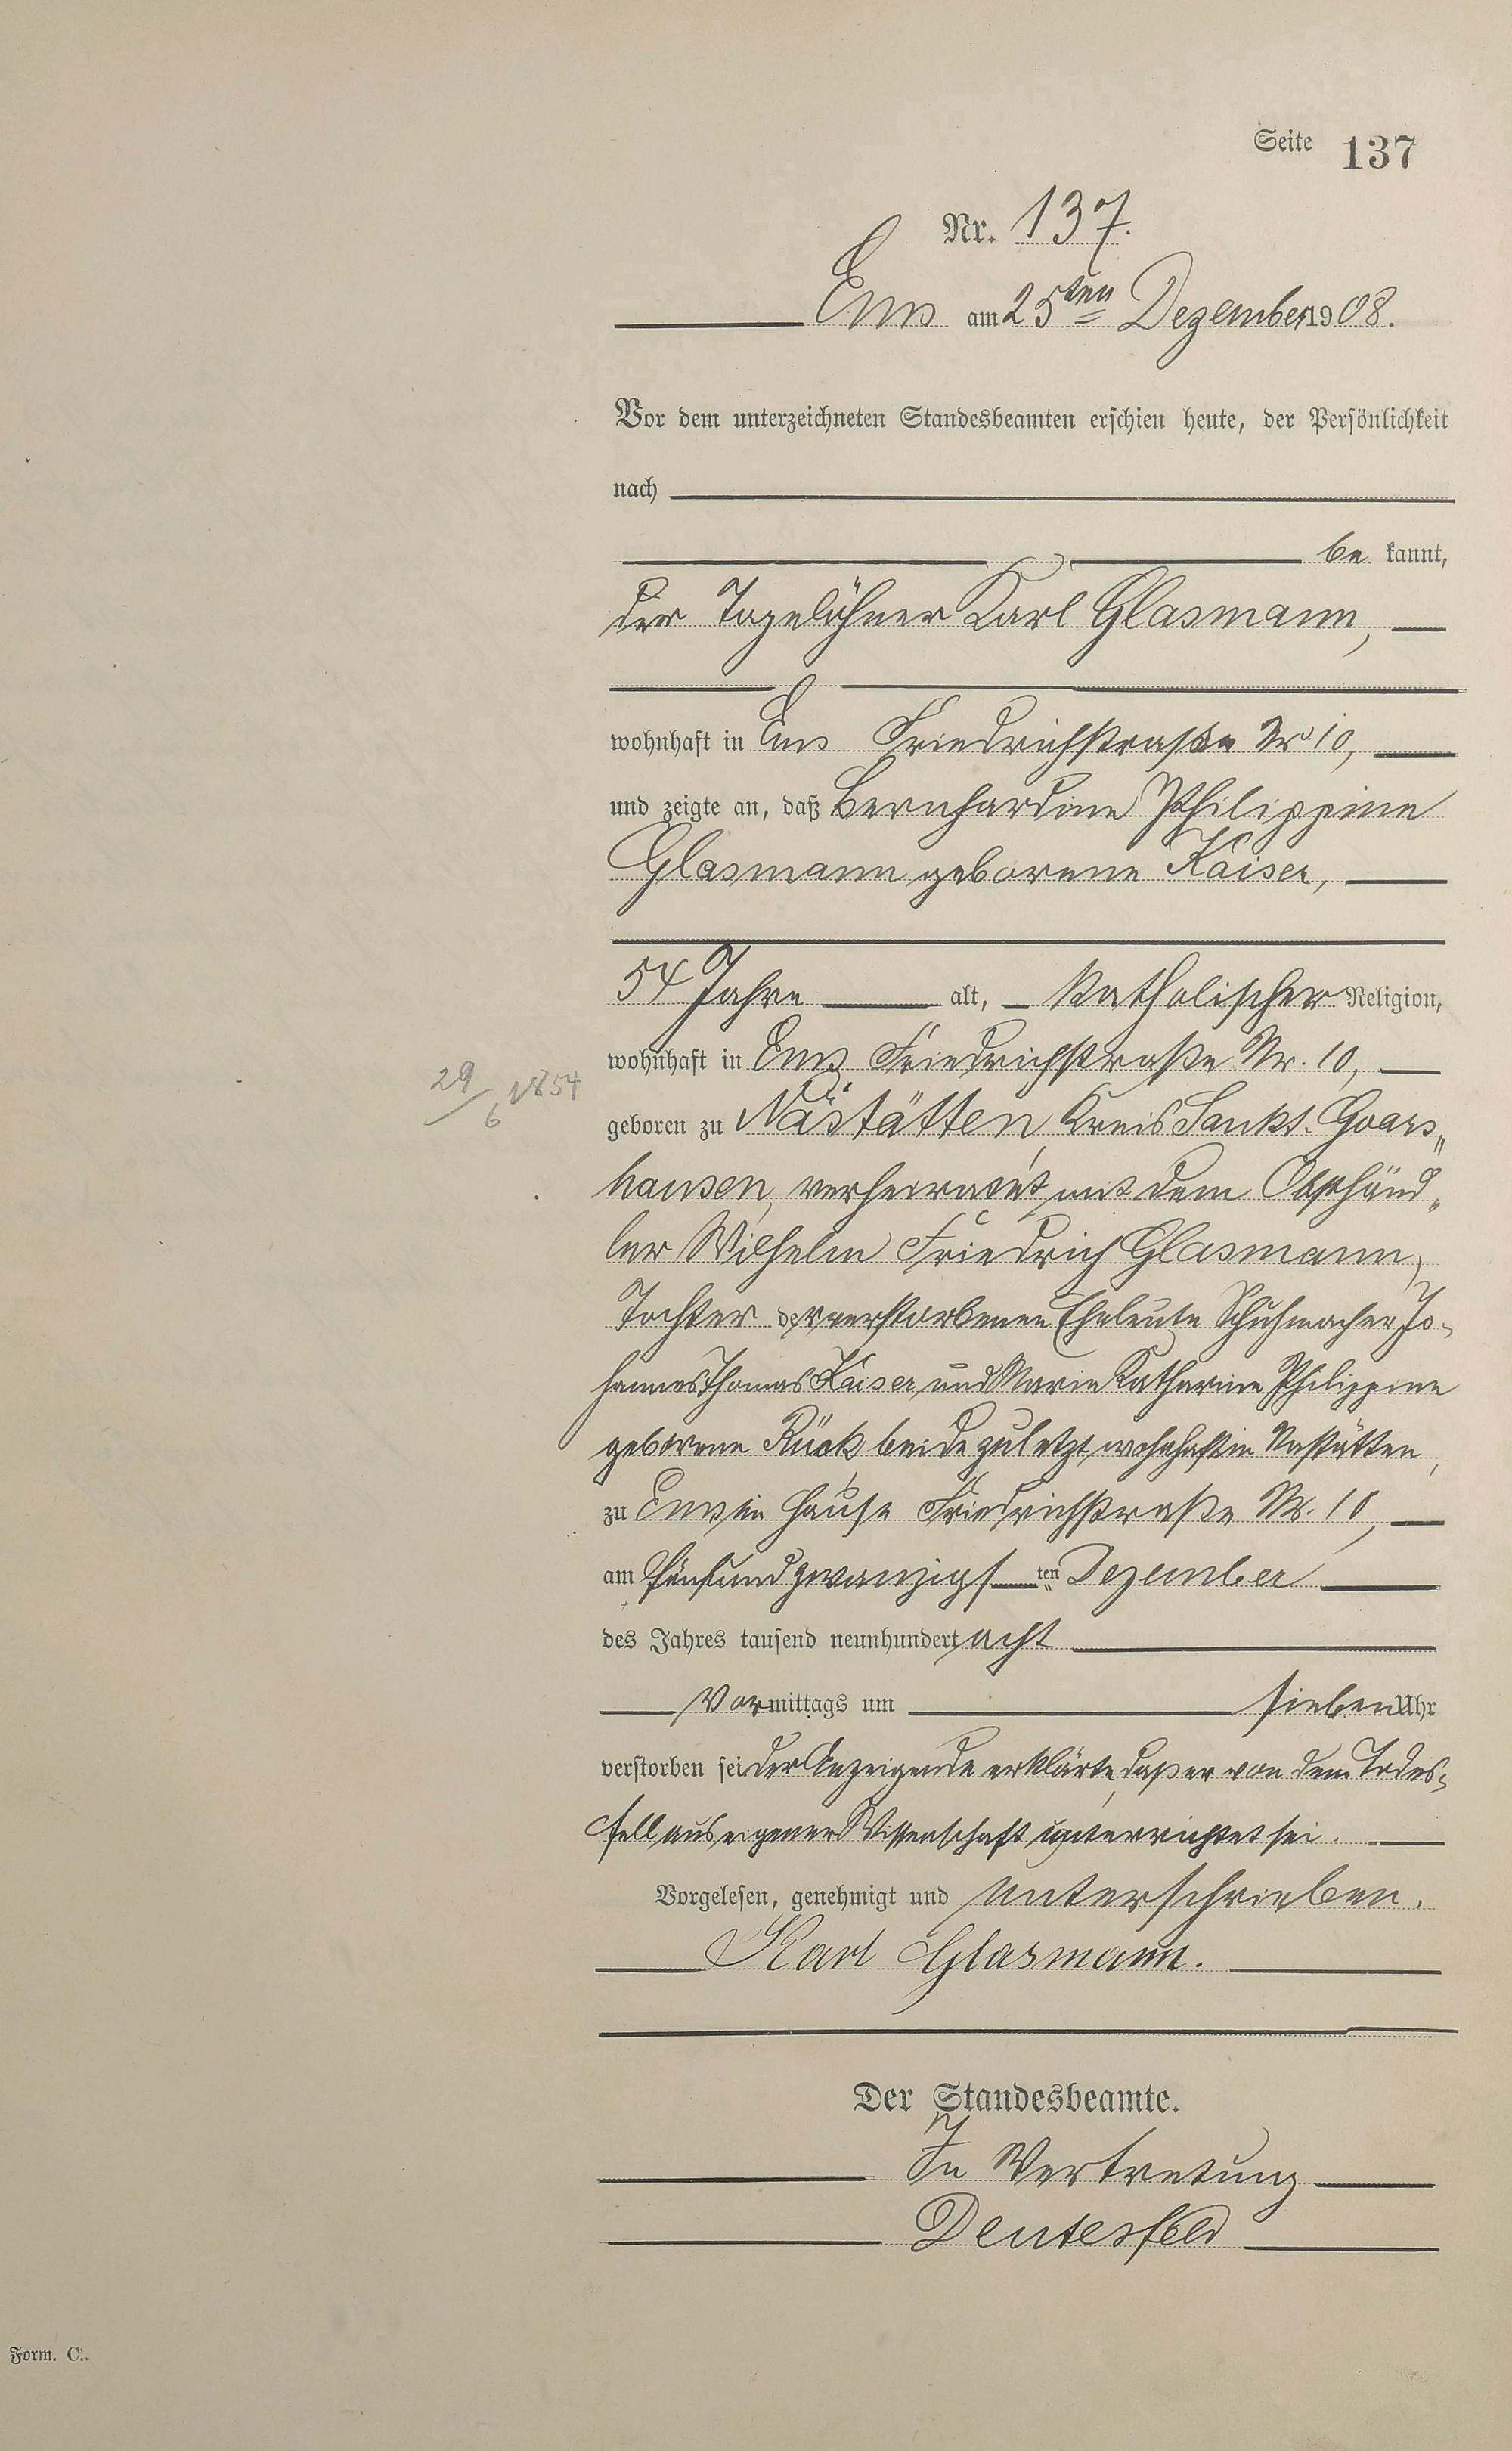 Seite 137
Nr. 137.
Ems am 25ten Dezember 1908.
Vor dem unterzeichneten Standesbeamten erschien heute, der Persönlichkeit
nach
be kannt,
der Tagelöhner Karl Glasmann,
wohnhaft in Ems Friedrichstraße No 10,
und zeigte an, daß Bernhardine Philippine
Glasmann geborene Kaiser,
54 Jahre alt, katholischer Religion,
wohnhaft in Ems Friedrichstraße Nr. 10,
29/6 1854
geboren zu Nastätten, Kreis Sankt. Goars„
hausen, verheiratet mit dem Obsthänd„
ler Wilhelm Friedrich Glasmann,
Tochter der verstorbenen Eheleute Schuhmacher Jo-
hannes Thomas Kaiser und Marie Katharine Philippine
geborene Rück beide zuletzt wohnhaft in Nastätten,
zu Ems im Hause Friedrichstraße Nr. 10,
am fünfundzwanzigsten Dezember
des Jahres tausend neunhundert acht
Vormittags um sieben Uhr
verstorben sei der Anzeigende erklärte, daß er von dem Todes-
fall aus eigener Wissenschaft unterrichtet sei.
Vorgelesen, genehmigt und unterschrieben.
Karl Glasmann.
Der Standesbeamte.
In Vertretung
Deutesfeld
Form. C.